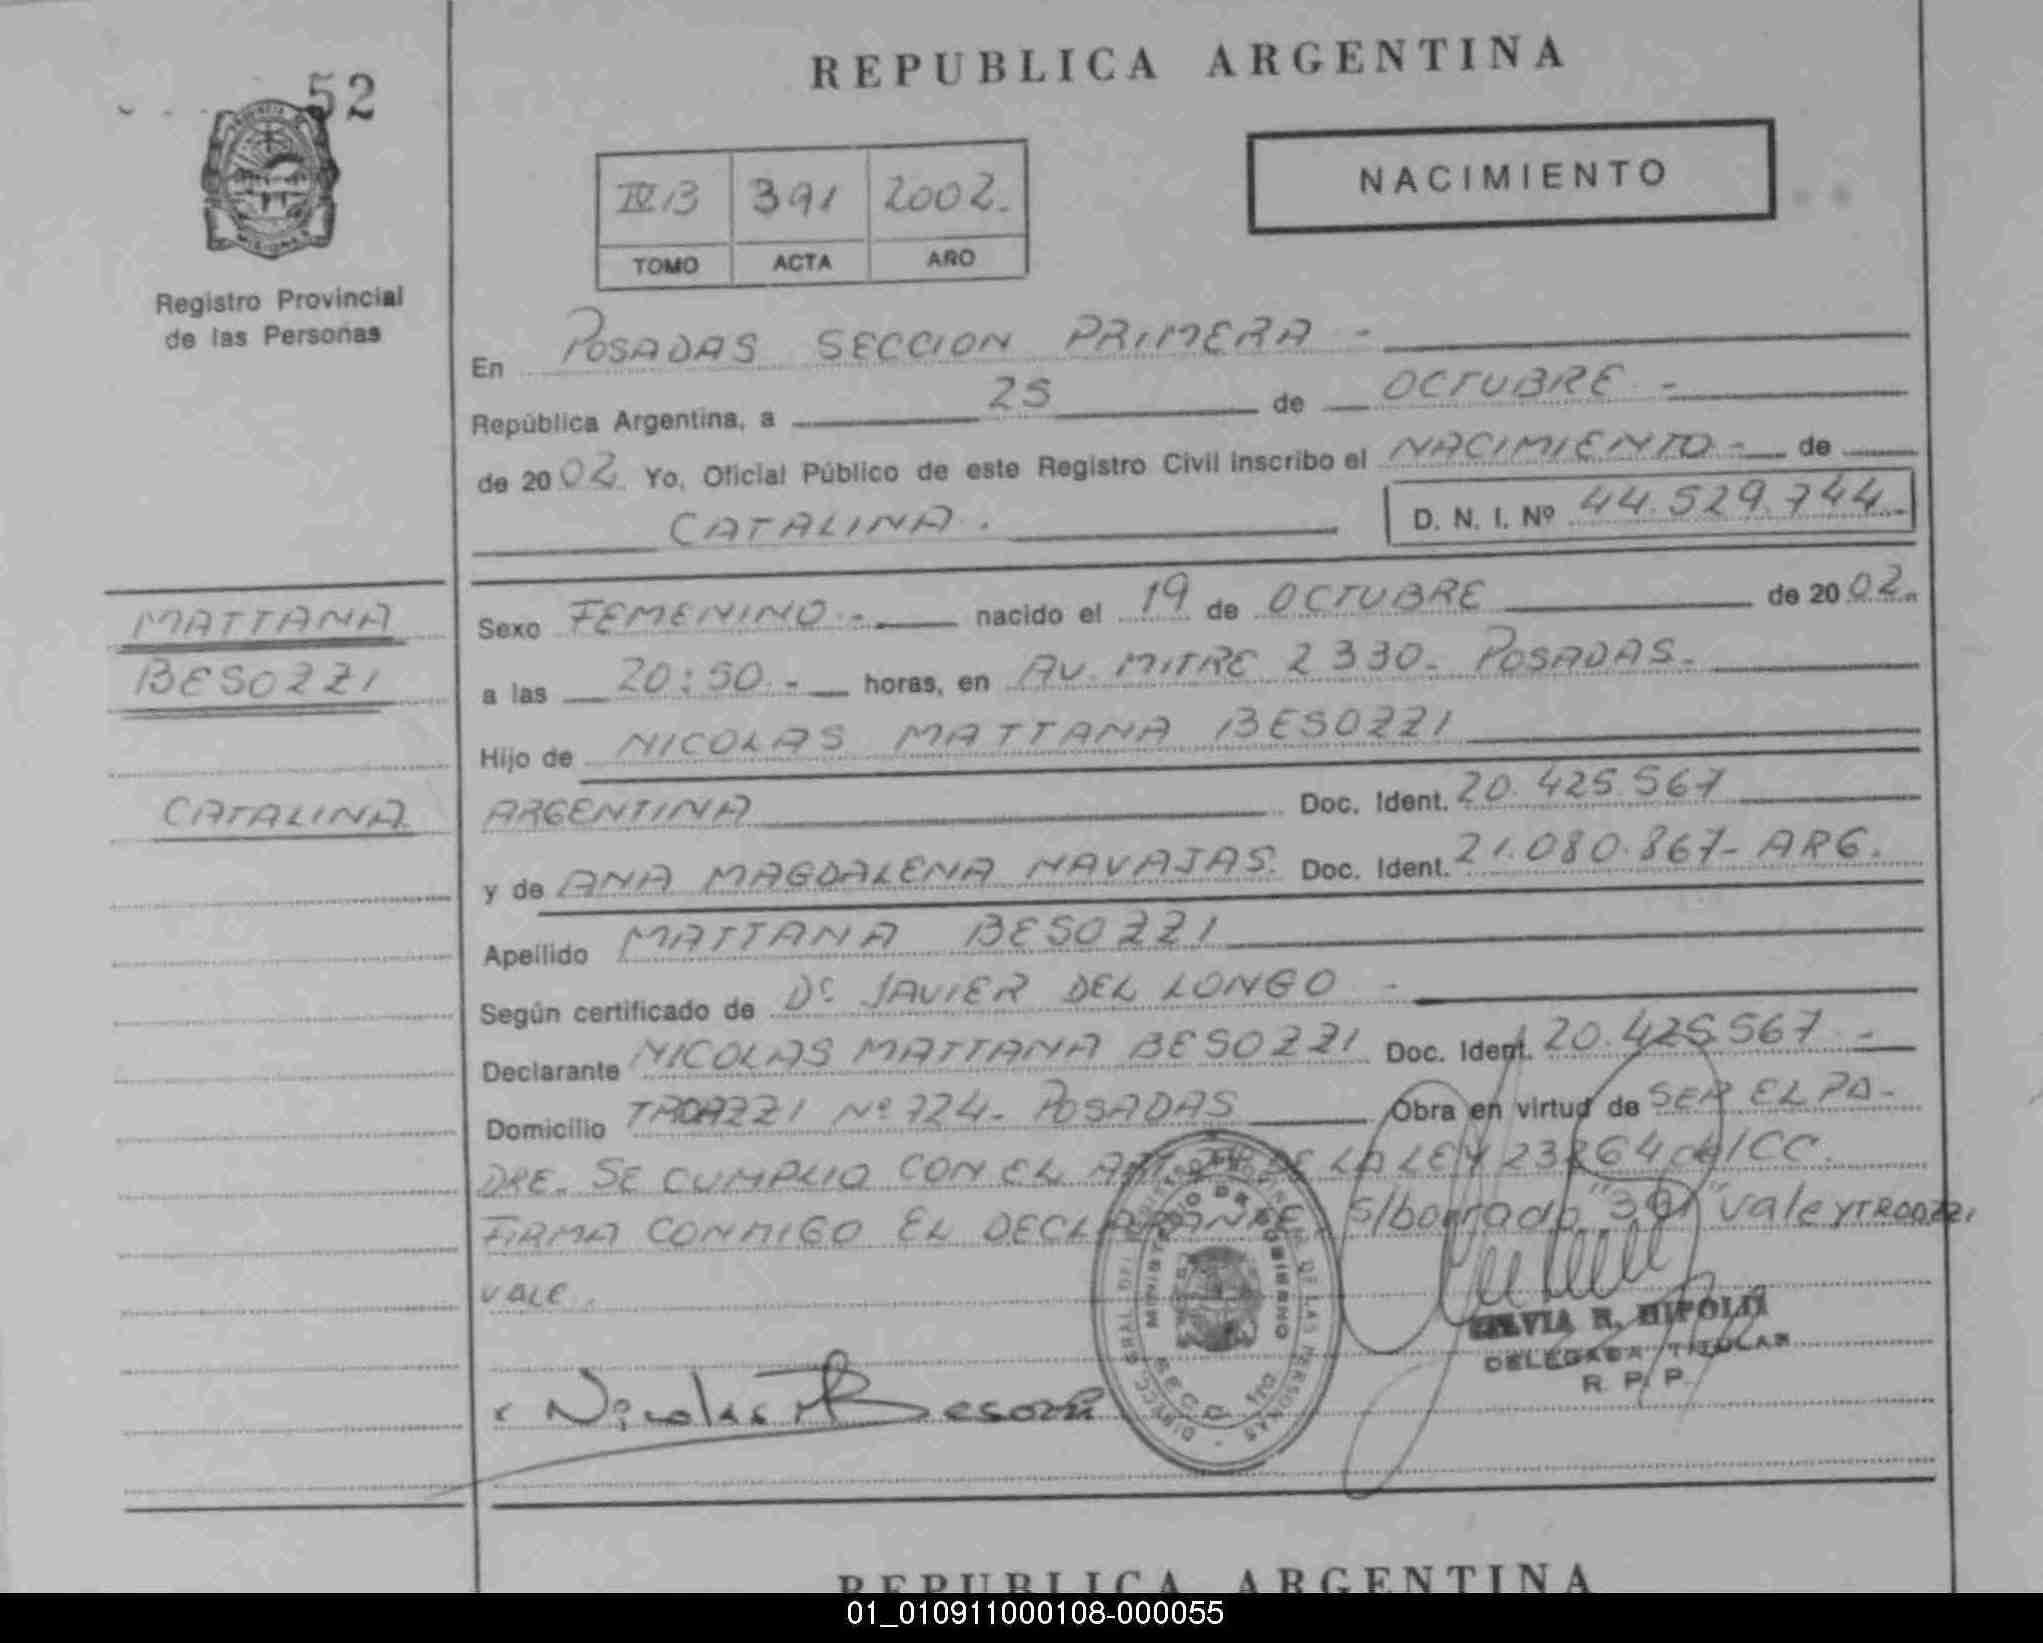 52
REPUBLICA ARGENTINA
IV B 391 2002.
TOMO ACTA AÑO
NACIMIENTO
Registro Provincial
de las Personas
En POSADAS SECCION PRIMERA -
República Argentina, a 25 de OCTUBRE -
de 2002. Yo, Oficial Público de este Registro Civil inscribo el NACIMIENTO - de
CATALINA. D. N. I. Nº 44.529.744.-
MATTANA
BESOZZI
CATALINA
Sexo FEMENINO.- nacido el 19 de OCTUBRE de 2002.
a las 20:50.- horas, en AV. MITRE 2330. POSADAS.
Hijo de NICOLAS MATTANA BESOZZI
ARGENTINA Doc. Ident. 20.425.567
y de ANA MAGDALENA NAVAJAS. Doc. Ident. 21.080.867- ARG.
Apellido MATTANA BESOZZI
Según certificado de Dr. JAVIER DEL LONGO -
Declarante NICOLAS MATTANA BESOZZI Doc. Ident. 20.425.567.-
Domicilio Nº 724- POSADAS Obra en virtud de SER EL PA-
DRE. SE CUMPLIO CON EL DE LA LEY 23264 del CC.
FIRMA CONMIGO EL DECLARANTE. S/borrado "391" vale y
VALE.
Nicolas Besozzi
MINISTERIO DE GOBIERNO
SILVIA R. HIPOLITI
DELEGADA TITULAR
R. P. P.
REPUBLICA ARGENTINA
01_010911000108-000055